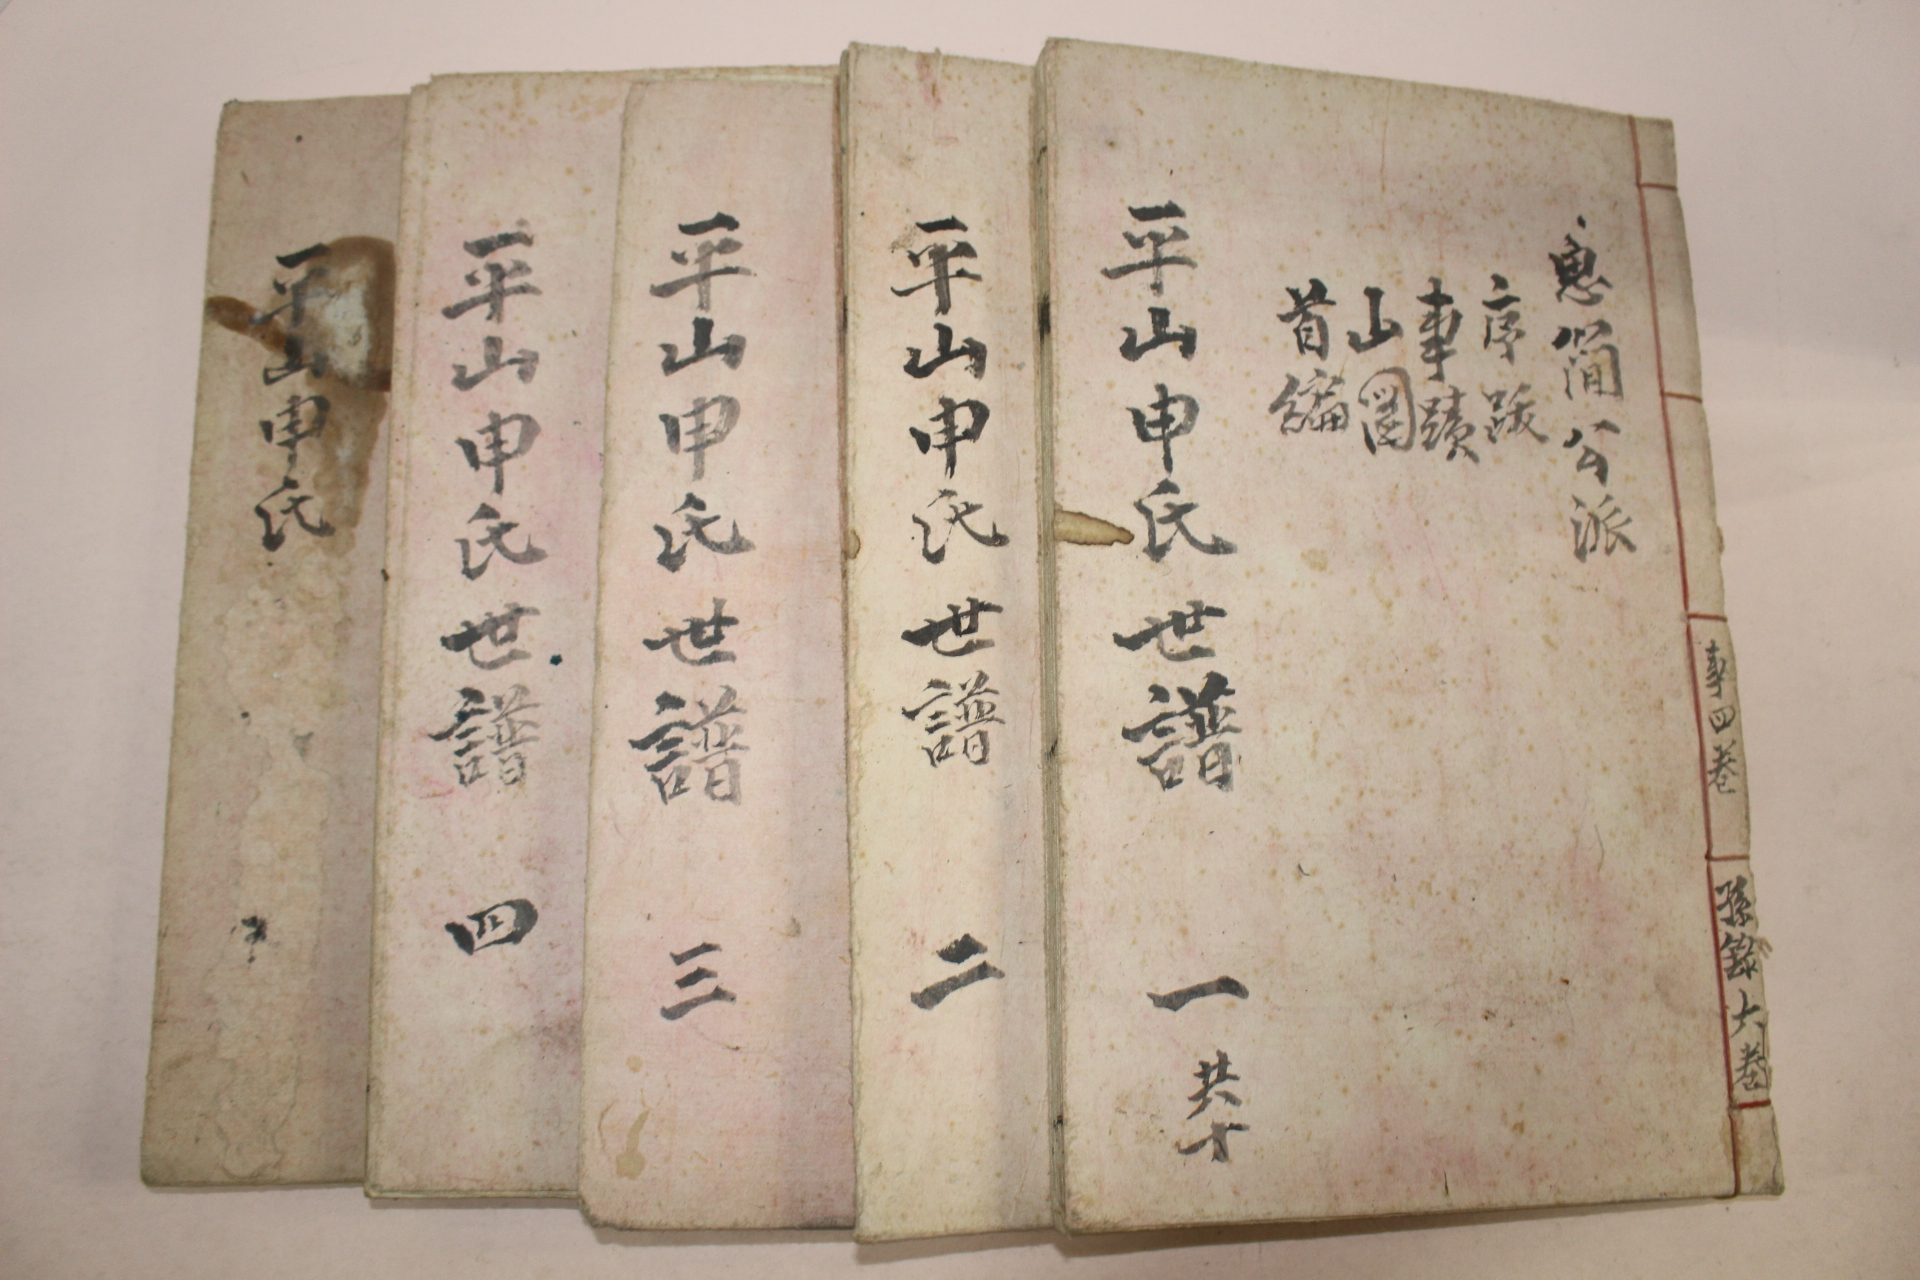 惠簡公派
序跋
事蹟
山圖
首編
平山申氏世譜 一
共十
事四卷
孫錄六卷
平山申氏世譜 二
平山申氏世譜 三
平山申氏世譜 四
平山申氏